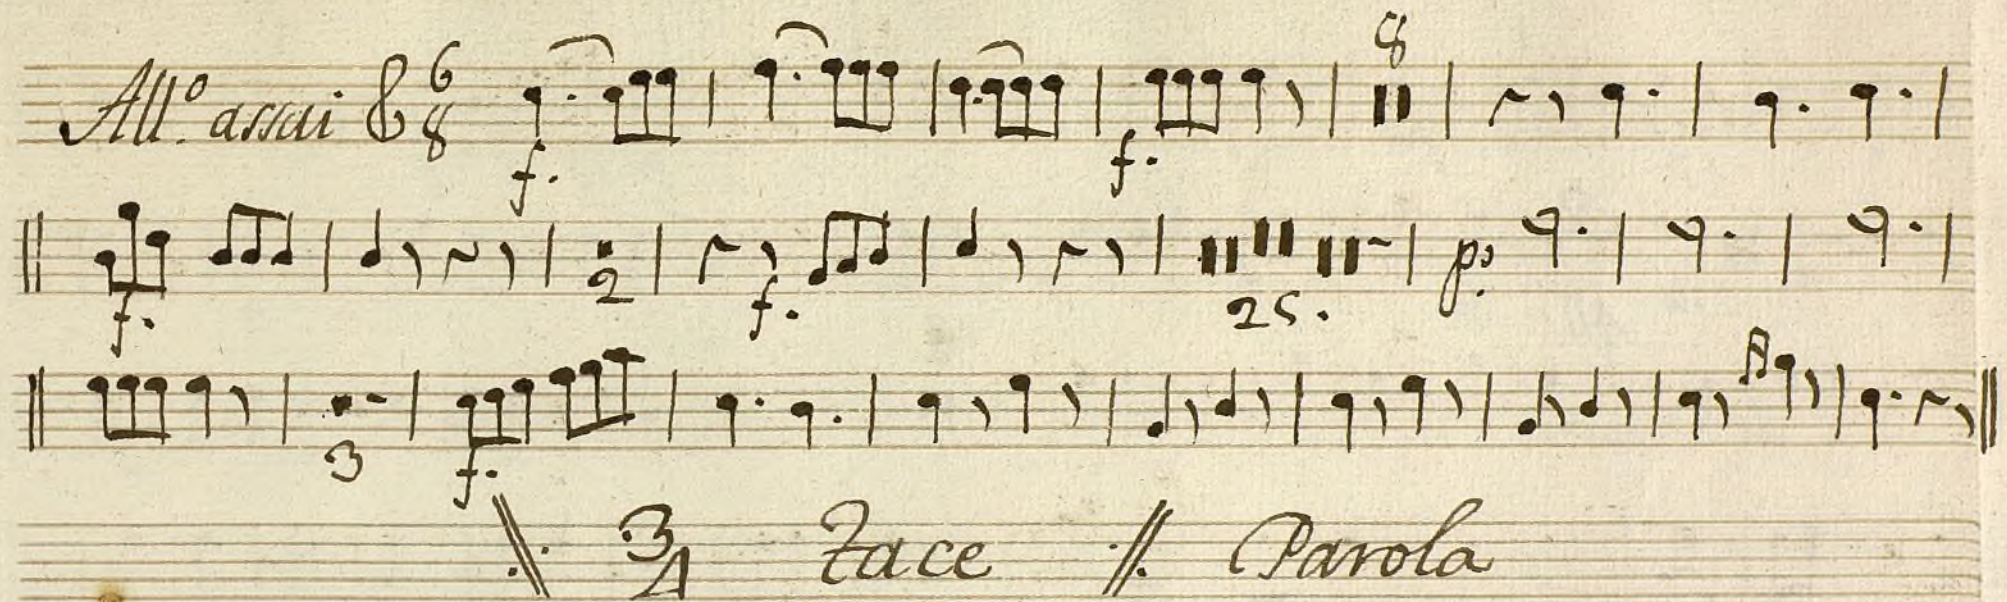 8
All.º assai 6/8
f. f.
2
f. f. 25. p:
3
f.
3/4 Tace Parola